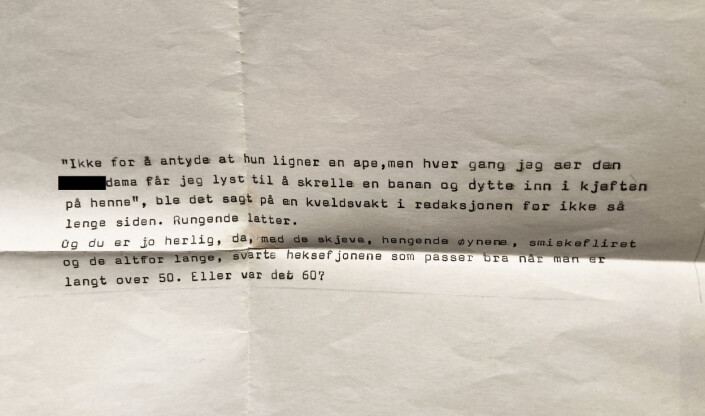 "Ikke for å antyde at hun ligner en ape,men hver gang jag ser den
dama får jeg lyst til å skrelle en banan og dytte inn i kjeften
på henne", ble det sagt på en kveldsvakt i redaksjonen for ikke så
lenge siden. Rungende latter.
Og du er jo herlig, da, med de skjeve, hengende øynene, smiskefliret
og de altfor lange, svarte heksefjonene som passer bra når man er
langt over 50. Eller var det 60?